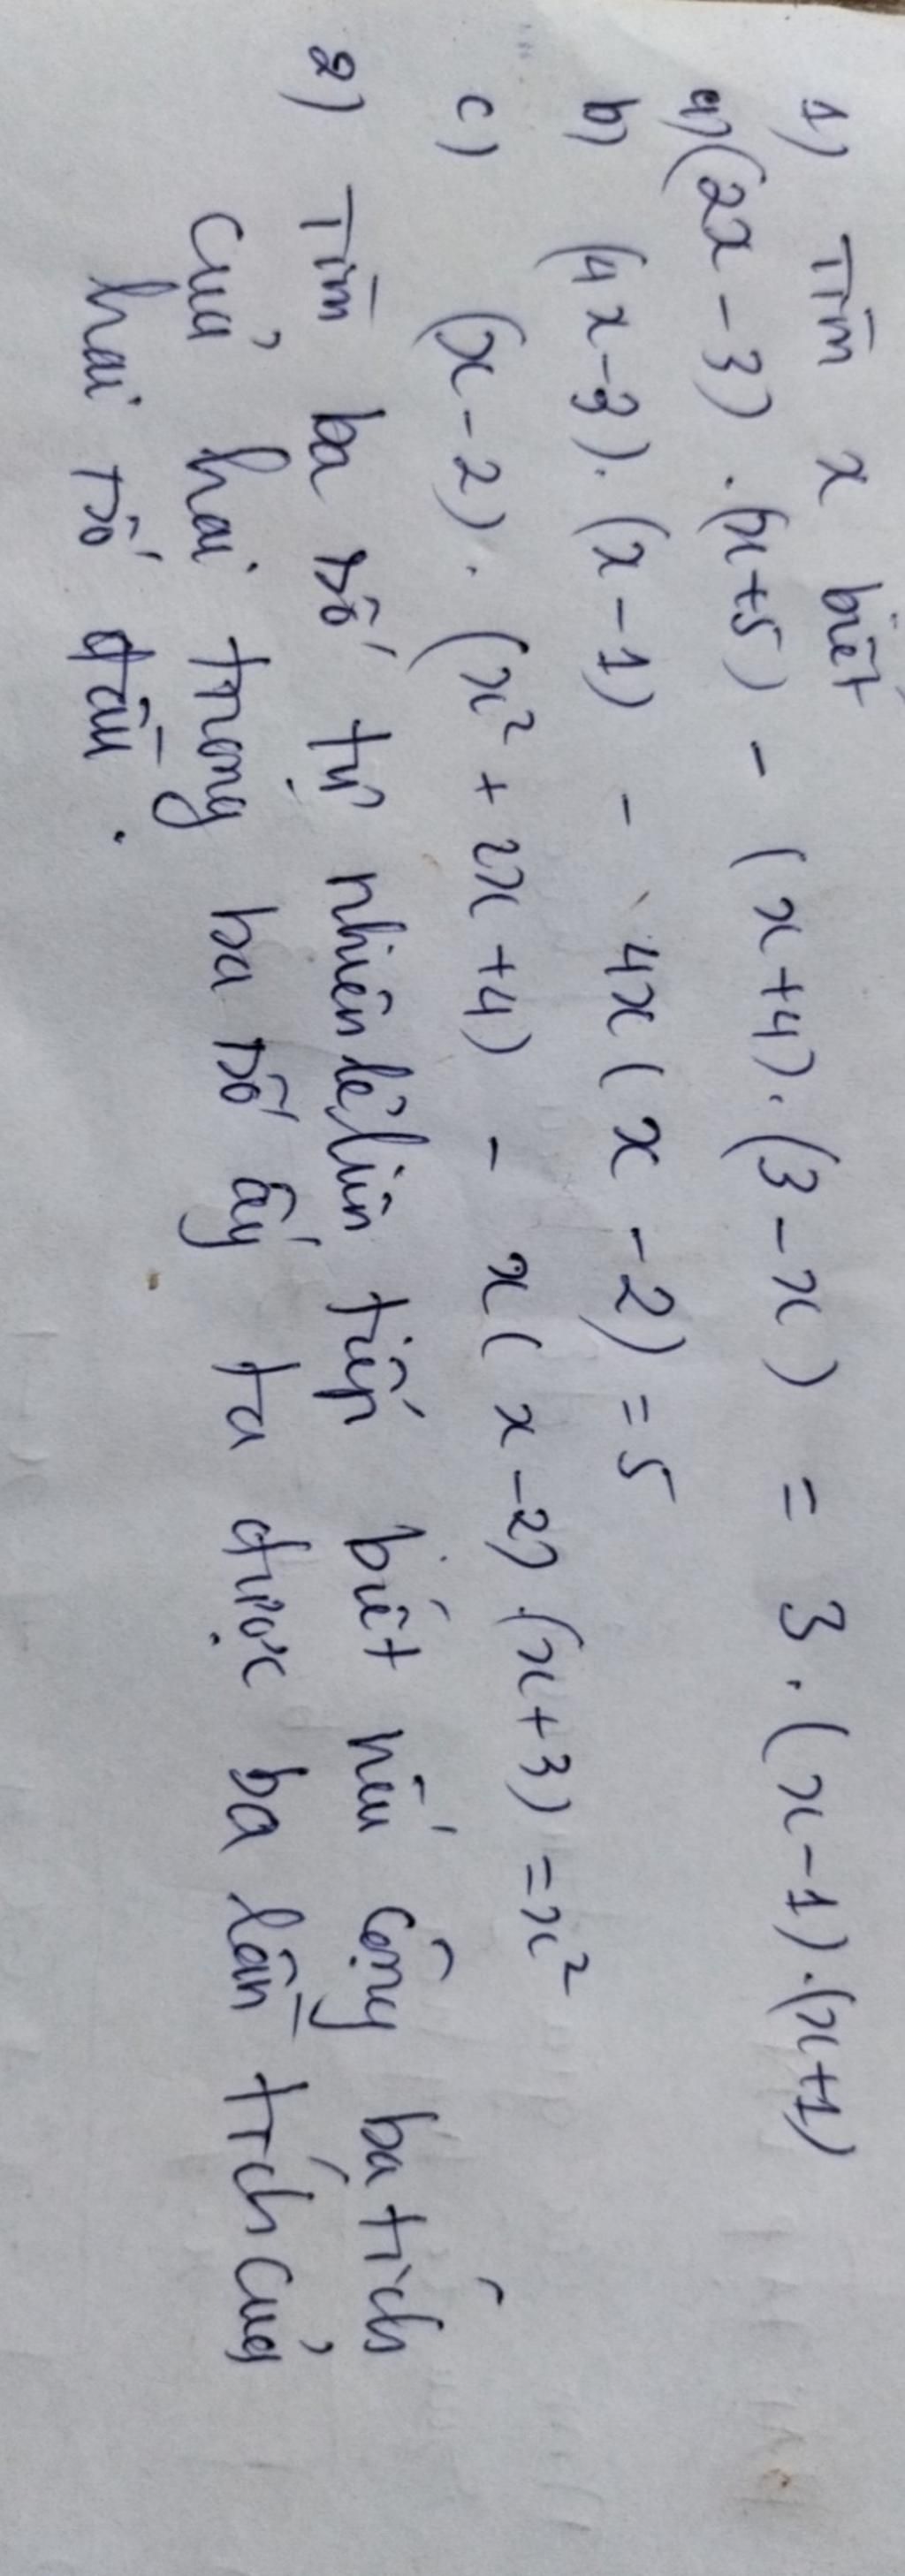 1) Tìm x biết
a) (2x - 3) . (x+5) - (x+4) . (3-x) = 3 . (x-1) . (x+1)
b) (4x-3) . (x-1) - 4x (x-2) = 5
c) (x-2) . (x² + 2x + 4) - x (x-2) . (x+3) = x²
2) Tìm ba số tự nhiên lẻ liên tiếp biết nếu cộng ba tích
của hai trong ba số ấy ta được ba lần tích của
hai số đầu.